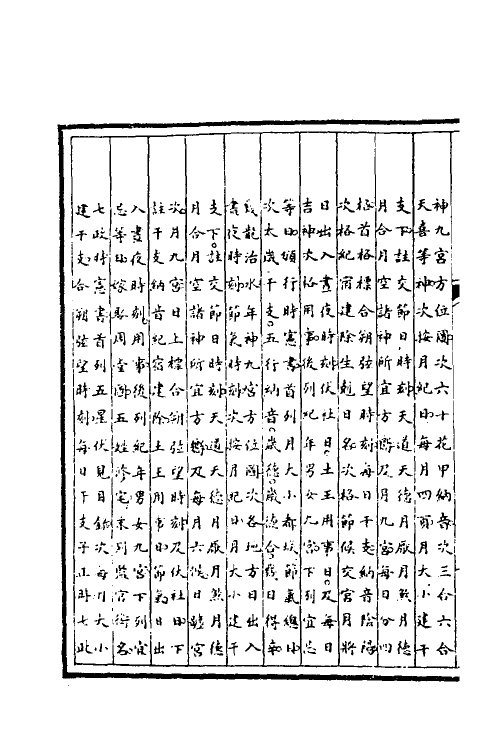 神九宮方位圖次六十花甲納音次三合六合
天喜等神次按月紀日每月四節月大小建干
支下註交節日時刻天道天德月厭月煞月德
月合月空諸神所宜方嚮及月九宮每日分四
格首格標合朔弦望時刻每日干支納音陰陽
次格紀宿建除生剋日名次格節候交宮月將
日出入晝夜時刻伏社日土王用事日及每日
吉神次格用事後列紀年男女九宮下列宜忌
等日頒行時憲書首列月大小都城節氣總目
次太歲干支五行納音歲德歲德合幾日得辛
幾龍治水年神九宮方位圖次各地方日出入
晝夜時刻節氣時刻次按月紀日月大小建干
支下註交節時刻天道天德月厭月煞月德
月合月空諸神所宜方嚮及每月六候日躔宮
次月九宮日上標合朔弦望時刻及伏社日下
註干支納音紀宿建除土王用事日節氣日出
入晝夜時刻用事後列紀年男女九宮下列宜
忌等日嫁娶周堂圖五姓修宅末列監官銜名
七政時憲書首列五星伏見目錄次每月大小
建干支合朔弦望時刻每日下支子正時七政